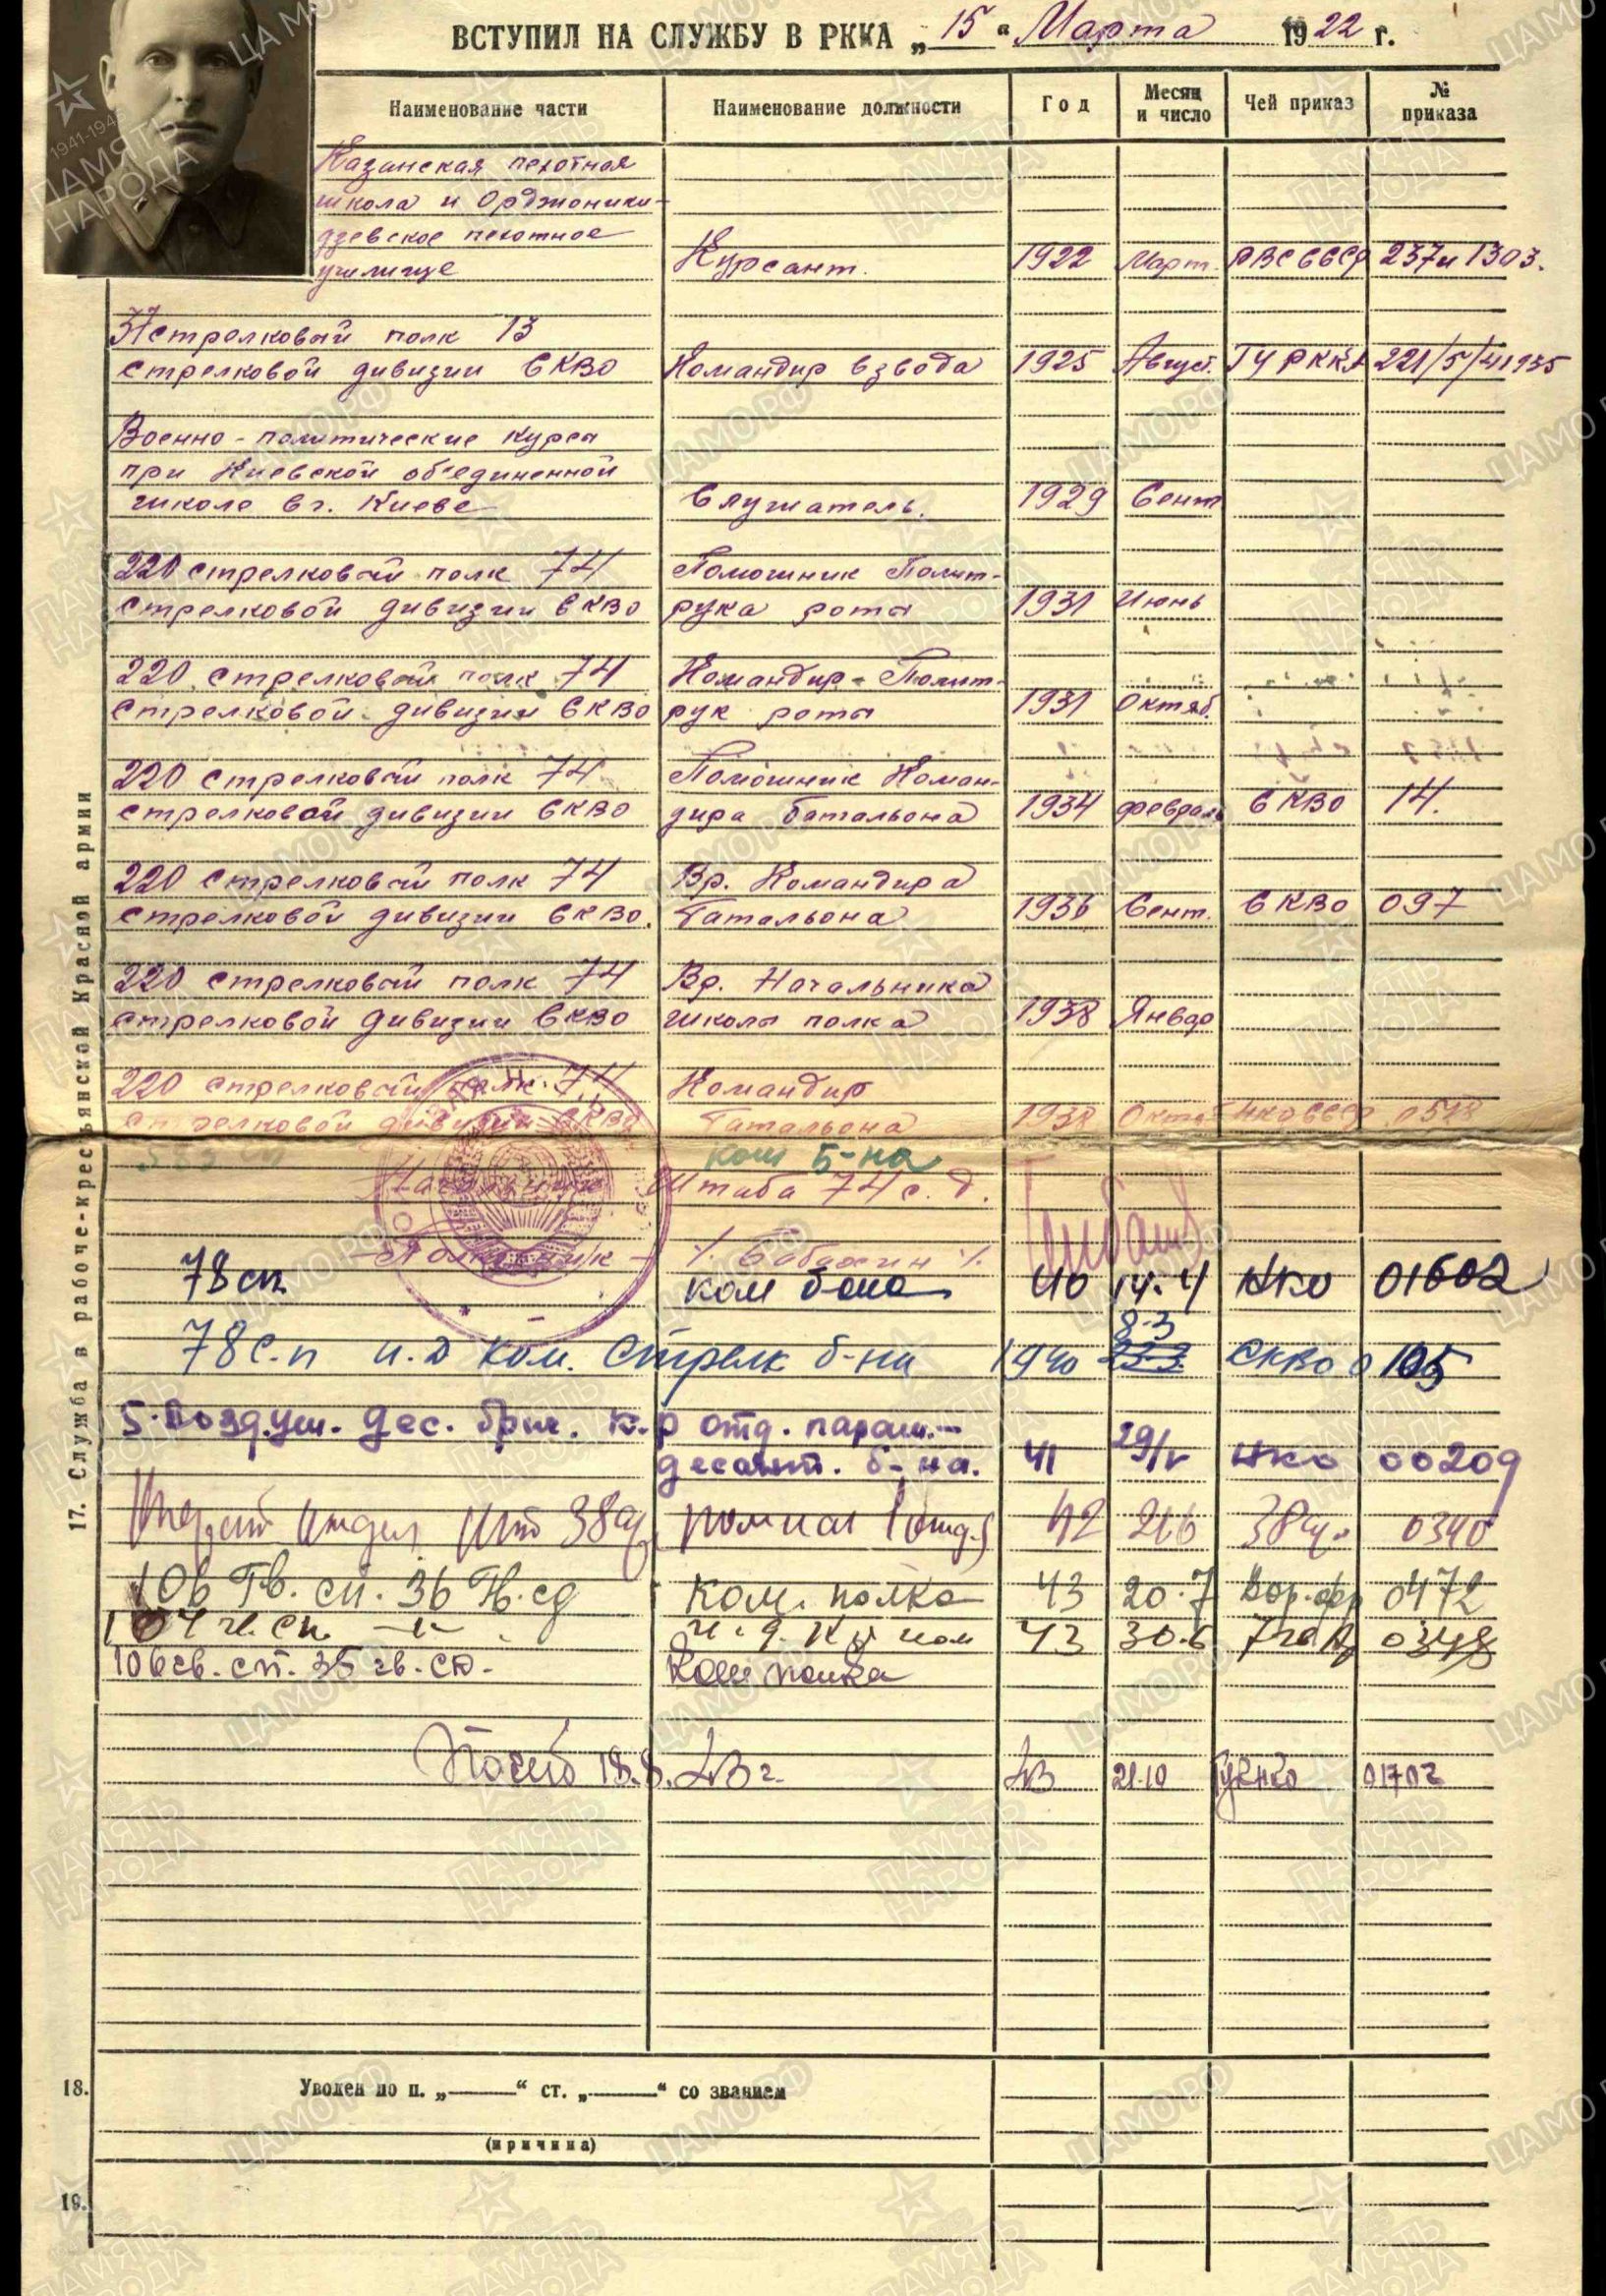 ВСТУПИЛ НА СЛУЖБУ В РККА „15“ Марта 1922 г.
Наименование части Наименование должности Год Месяц и число Чей приказ № приказа
Казанская пехотная
школа и Орджоники-
дзевское пехотное
училище Курсант. 1922 Март. РВС СССР 237 и 1303.
37 стрелковый полк 13
стрелковой дивизии СКВО Командир взвода 1925 Август. ГУ РККА 221/5/41935
Военно-политические курсы
при Киевской объединенной
школе в г. Киеве Слушатель. 1929 Сент
220 стрелковый полк 74 Помошник Полит-
стрелковой дивизии СКВО рука роты 1931 Июнь
220 стрелковый полк 74 Командир-Полит-
стрелковой дивизии СКВО рук роты 1931 Октяб.
220 стрелковый полк 74 Помошник Коман-
стрелковой дивизии СКВО дира батальона 1934 февраль СКВО 14.
220 стрелковый полк 74 Вр. Командира
стрелковой дивизии СКВО. Батальона 1936 Сент. СКВО 097
220 стрелковый полк 74 Вр. Начальника
стрелковой дивизии СКВО школы полка 1938 Январ
220 стрелковый полк 74 Командир
стрелковой дивизии СКВО Батальона 1938 НКО СССР
ком б-на
Начальник Штаба 74 с.д.
Полковник
78 сп ком б-она 40 14.4 НКО 01602
8.3
78 с.п и.д ком. Стрелк б-на 1940 СКВО 0105
5. Воздуш. дес. бриг. к-р отд. параш.-
десант. б-на. 41 29/V НКО 00209
Опер. отдел Шт 38 а. пом нач 1 отд. 42 38 а. 0340
106 Гв. сп. 36 Гв. сд ком. полка 43 20.7 Вор. фр 0472
104 г. сп -"- 43 30.6 7 гв А 0348
106 гв. сп. 36 гв. сд. Ком. полка
Погиб 18.8.43 г. 43 21.10 ГУК НКО 01702
17. Служба в рабоче-крестьянской Красной армии
18. Уволен по п. „——“ ст. „——“ со званием
(причина)
19.
ПАМЯТЬ НАРОДА
1941-1945
ЦАМО.РФ